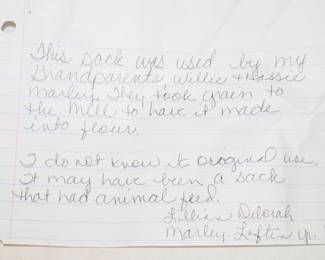 This sack was used by my
Grandparents Willie & Hassie
Marley. They took grain to
the mill to have it made
into flour.
I do not know it original use.
It may have been a sack
that had animal feed.
Lillian Deborah
Marley Loftin